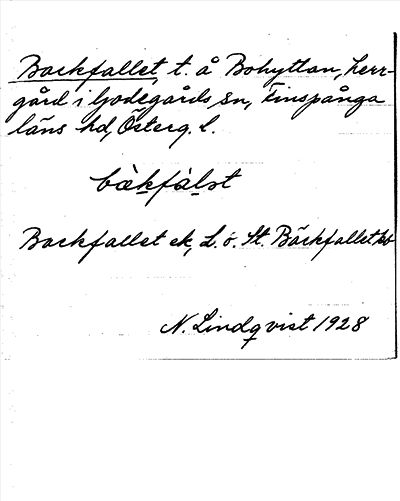 Backfallet, t. å Bohyttan, herr-
gård i Godegårds sn, Finspånga
läns hd, Österg. l.
bàkfálṣt
Backfallet ek, L. ö. St. Bäckfallet
N. Lindqvist 1928